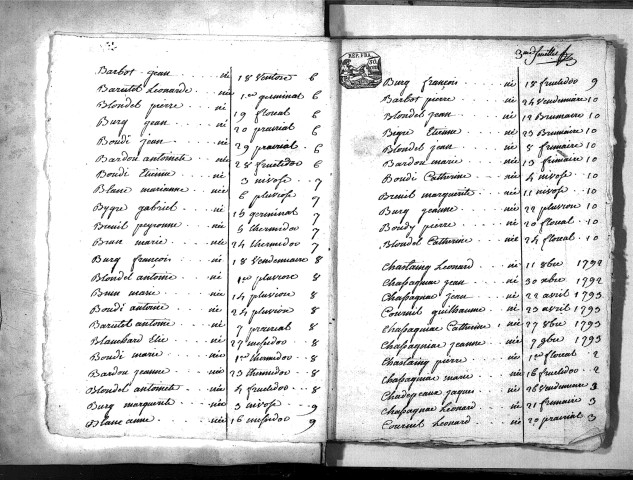 Barbot jean né 18 ventose 6
Barutot Leonarde née 1er germinal 6
Blondel pierre né 19 floreal 6
Burg jean né 20 prairial 6
Boudi jean né 29 prairial 6
Bardon antoinete née 28 fructidor 6
Boudi Etienne né 3 nivose 7
Blanc marianne née 6 pluviose 7
Bygre gabriel né 15 germinal 7
Breuil peyronne née 5 thermidor 7
Brun marie née 24 thermidor 7
Burg françois né 18 vendemiaire 8
Blondel antoine né 1er pluviose 8
Brun marie née 14 pluviose 8
Boudi antoine né 24 pluviose 8
Barutot antoine né 7 prairial 8
Blanchard Elie né 27 messidor 8
Boudi marie née 1er thermidor 8
Bardon jeanne née 23 thermidor 8
Blondel antoinete née 4 fructidor 8
Burg marguerite née 3 nivose 9
Blanc anne née 16 messidor 9
REP. FRA.
3me feuillet
Burg françois né 18 fructidor 9
Barbot pierre né 24 vendemiaire 10
Blondel jean né 12 Brumaire 10
Begre Etienne né 23 Brumaire 10
Blondel jean né 8 frimaire 10
Bardon marie née 13 frimaire 10
Boudi Catherine née 4 nivose 10
Breuil marguerite née 11 nivose 10
Burg jeanne née 22 pluviose 10
Boudy pierre né 20 floreal 10
Blondel Catherine née 24 floreal 10
Chastaing Leonard né 11 8bre 1792
Chassagnac jean né 30 9bre 1792
Chassagnac jean né 22 avril 1793
Cournil guilhaume né 23 avril 1793
Chassagnac Catherine née 27 8bre 1793
Chassagniac jeanne née 7 9bre 1793
Chastaing pierre né 1er floreal 2
Chassagnac marie née 16 fructidor 2
Chadepeaux jaques né 26 vendemiaire 3
Chassagnac Leonard né 21 frimaire 3
Cournil Leonard né 20 prairial 3